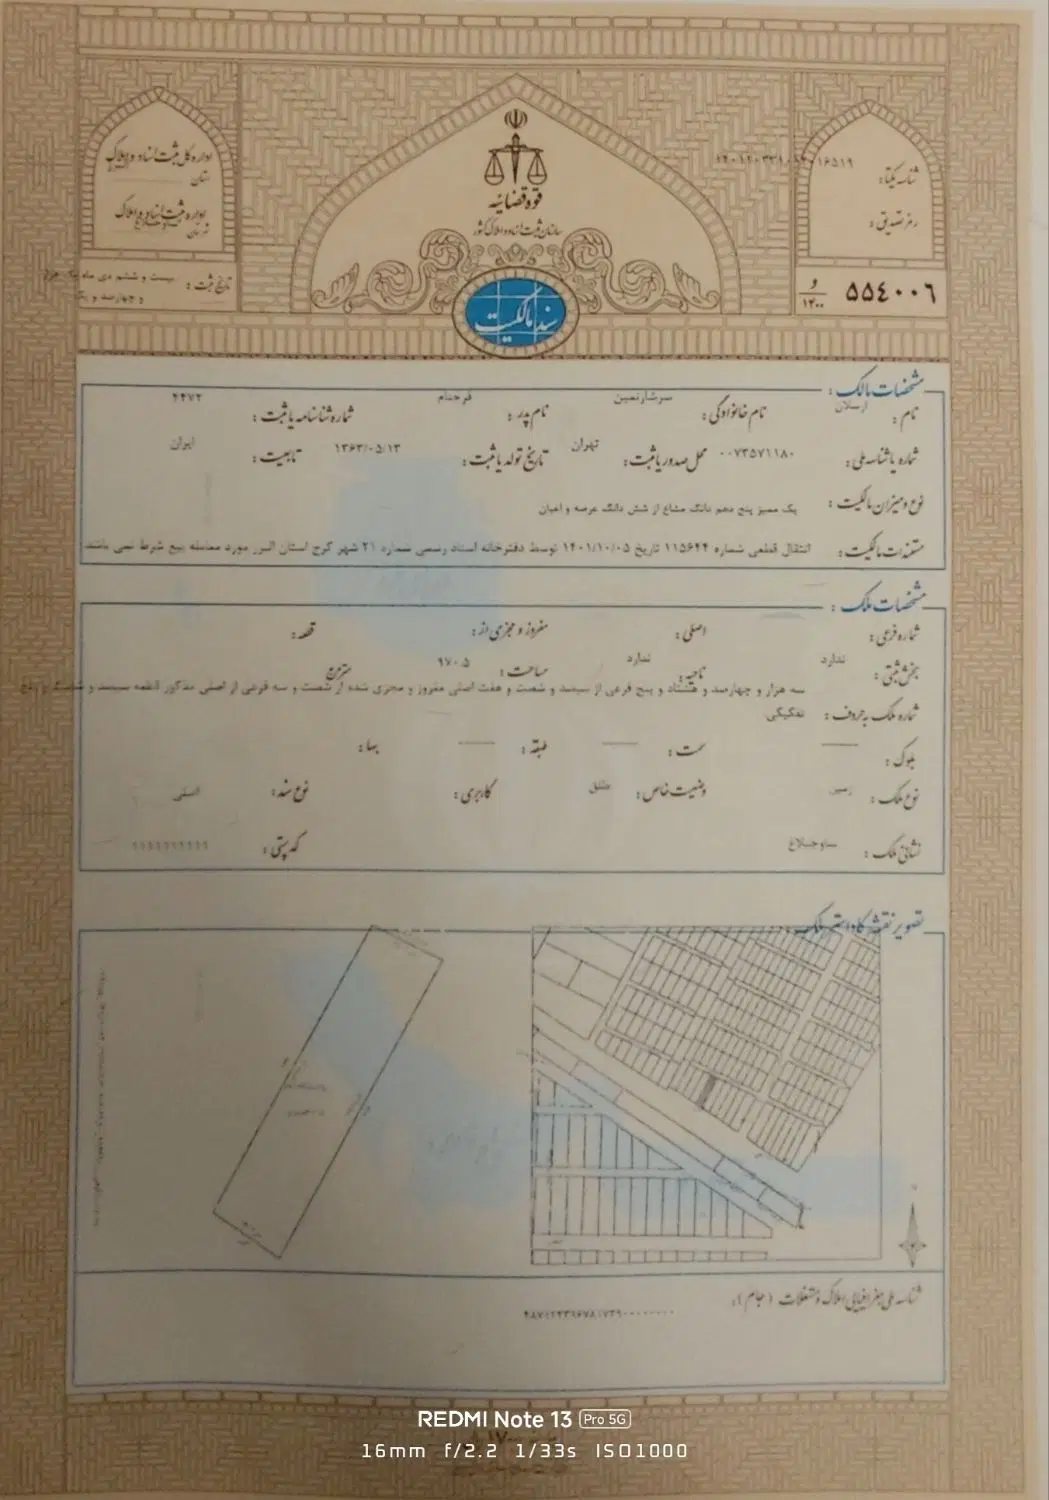 قوه قضائیه
سازمان ثبت اسناد و املاک کشور
سند مالکیت
اداره کل ثبت اسناد و املاک
استان
اداره ثبت اسناد و املاک
شهرستان
تاریخ ثبت : بیست و ششم دی ماه یک هزار
و چهارصد و یک
شناسه یکتا:
رمز تصدیق :
۵۵٤۰۰٦ و ۱۴۰۰
مشخصات مالک :
نام : ارسلان نام خانوادگی : سرشارنمین نام پدر : فرحنام شماره شناسنامه یا ثبت : ۴۴۷۲
شماره یا شناسه ملی : ۰۰۷۳۵۷۱۱۸۰ محل صدور یا ثبت : تهران تاریخ تولد یا ثبت : ۱۳۶۳/۰۵/۱۳ تابعیت : ایران
نوع و میزان مالکیت : یک ممیز پنج دهم دانگ مشاع از شش دانگ عرصه و اعیان
مستندات مالکیت : انتقال قطعی شماره ۱۱۵۶۴۴ تاریخ ۱۴۰۱/۱۰/۰۵ توسط دفترخانه اسناد رسمی شماره ۲۱ شهر کرج استان البرز مورد معامله بیع شرط نمی باشد
مشخصات ملک :
شماره فرعی : اصلی : مفروز و مجزی از : قطعه :
بخش ثبتی : ندارد ناحیه : ندارد مساحت : ۹۷۰.۵ مترمربع
شماره ملک به حروف : سه هزار و چهارصد و هشتاد و پنج فرعی از سیصد و شصت و هفت اصلی مفروز و مجزی شده از شصت و سه فرعی از اصلی مذکور قطعه سیصد و شصت و پنج
تفکیکی
بلوک : سمت : طبقه : بهاء :
نوع ملک : زمین وضعیت خاص : طلق کاربری : نوع سند : اصلی
نشانی ملک : ساوجبلاغ کد پستی : ۹۹۹۹۹۹۹۹۹۹
تصویر نقشه کاداستر ملک
شناسه ملی جغرافیایی املاک و مستغلات (جام):
REDMI Note 13 Pro 5G
16mm f/2.2 1/33s ISO1000